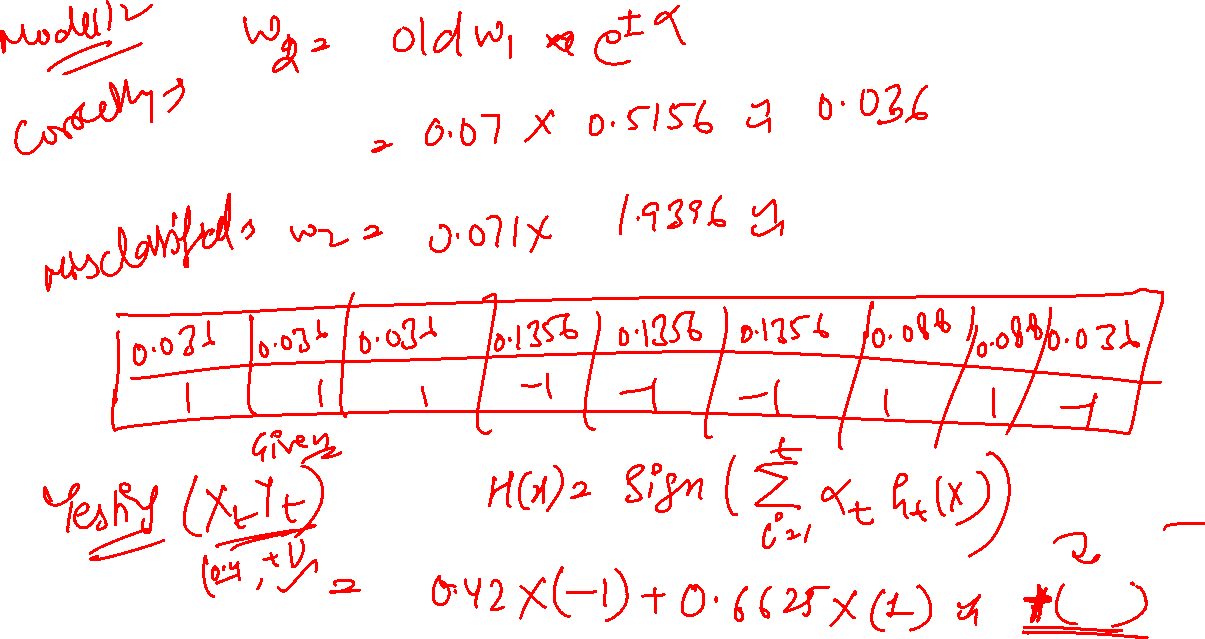 Model 2 W2 = old w1 * e^±α
Correctly
= 0.07 × 0.5156 ⇒ 0.036
misclassified w2 = 0.071 × 1.9396 ⇒
0.036 0.036 0.036 0.1356 0.1356 0.1356 0.088 0.088 0.036
1 1 1 -1 -1 -1 1 1 -1
Given
Testing (Xt Yt) H(x) = Sign (∑ t i=1 αt ht(x))
(0.4, +1) = 0.42 × (-1) + 0.6625 × (1) ⇒ +( )